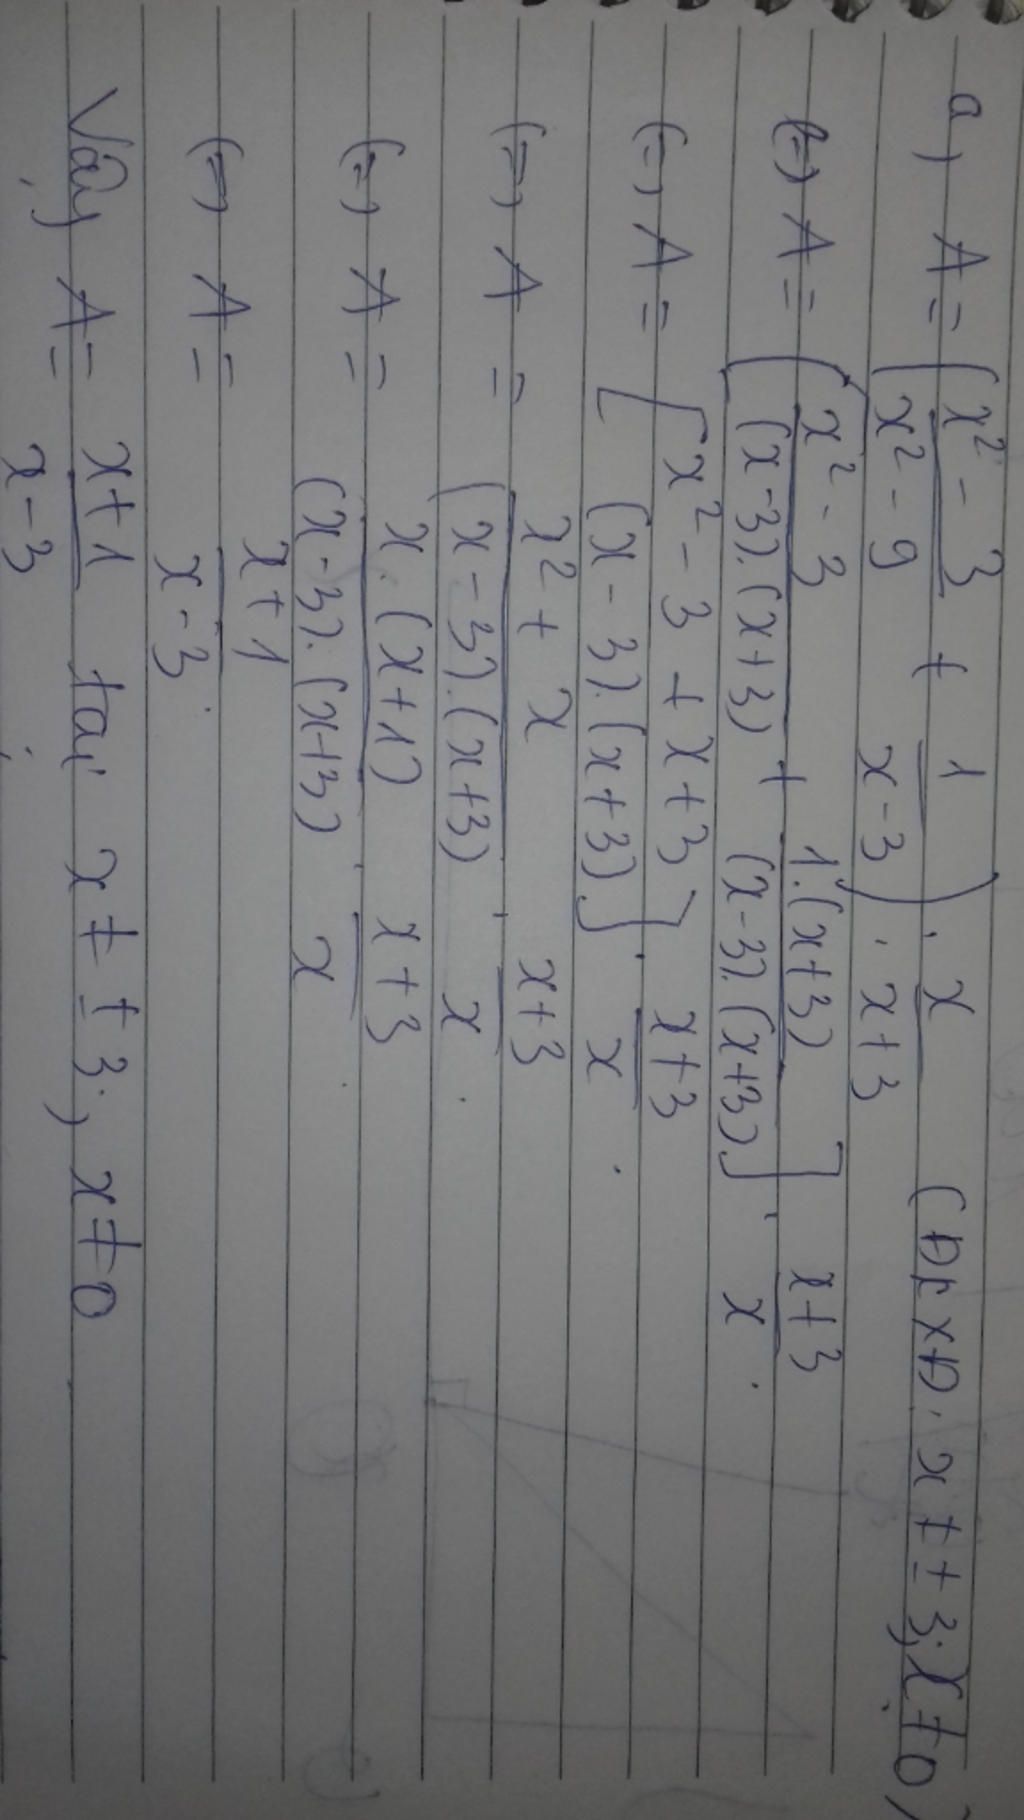 a) A = (x² - 3 / x² - 9 + 1 / x - 3) . x / x + 3 (ĐKXĐ: x ≠ ± 3; x ≠ 0)
(=) A = [x² - 3 / (x - 3).(x + 3) + 1.(x + 3) / (x - 3).(x + 3)] . x + 3 / x
(=) A = [x² - 3 + x + 3 / (x - 3).(x + 3)] . x + 3 / x
(=) A = x² + x / (x - 3).(x + 3) . x + 3 / x
(=) A = x.(x + 1) / (x - 3).(x + 3) . x + 3 / x
(=) A = x + 1 / x - 3
Vậy A = x + 1 / x - 3 tại x ≠ ± 3; x ≠ 0